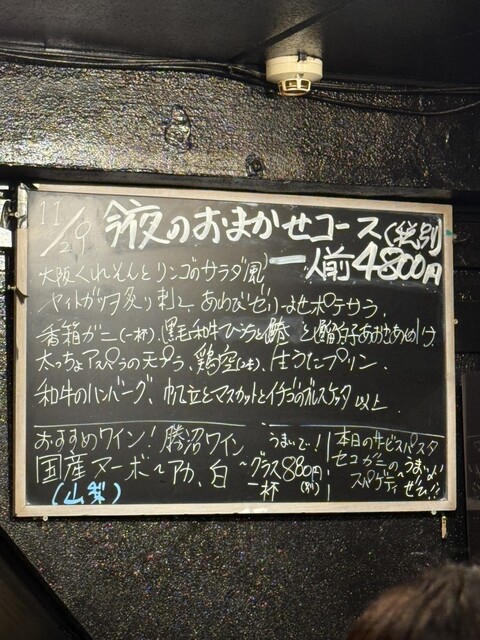 11/29 今夜のおまかせコース(税別)
一人前4800円
大阪くれそんとリンゴのサラダ風
ヤイトガツヲ炙り刺し、あわびゼリーよせポテサラ、
香箱ガニ(一杯)、黒毛和牛
太っちょアスパラの天プラ、鶏空(2本)、生うにプリン、
和牛のハンバーグ、帆立とマスカットとイチゴのブルスケッタ 以上
おすすめワイン! 勝沼ワイン うまいでー!
国産ヌーボー アカ、白 〜グラス一杯 880円
(山梨)
本日のサービスパスタ
セコガニの
スパゲティ
うまいよ!
ぜヒ!!